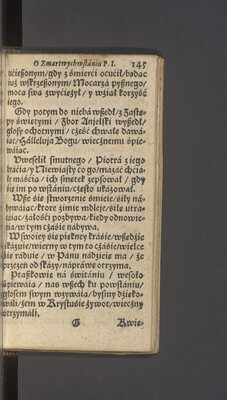 O Zmartwychwstániu P. I. 145
ućieſzonym/gdy z śmierći ocućił/badac
iuż wſkrzeſzonym/Mocarzá pyſznego/
moca ſwa zwyćiężył/ y wziął korzyść
iego.
Gdy potym do niebá wſzedł/z Zaſte-
py świętymi / Zbor Anielſki wyſzedł/
głoſy ochotnymi / cześć chwałe dawá-
iąc/Hálleluiá Bogu/wiecznemu śpie-
wáiąc.
Vweſelił ſmutnego / Piotrá z iego
bráćią/y Niewiáſty co go/mázáć chćiá-
łe máśćią / ich ſmętek zepſował / gdy
ſie im po wſtániu/czeſto vkázował.
Wſze ſie ſtworzenie śmieie/śiły ná-
bywáiąc/ktore źimie mdleie/śiłe vtrá-
wiáiąc/żáłośći pozbywa/kiedy odnowie-
nia/w tym czáśie nábywa.
W ſwoiey ſie piękney kráśie/wſzędźie
vkázuie/wierny w tym to czáśie/wielce
ſie ráduie / w Pánu nádzieie ma / że
przezeń od ſkázy/nápráwę otrzyma.
Ptaſzkowie ná świtániu / weſoło
śpiewáią / nas wſzech ku powſtániu/
głoſem ſwym wzywáią/byſmy dźięko-
wáli/żem w Kryſtuśie żywot/wieczny
otrzymáli.
G Kwie-